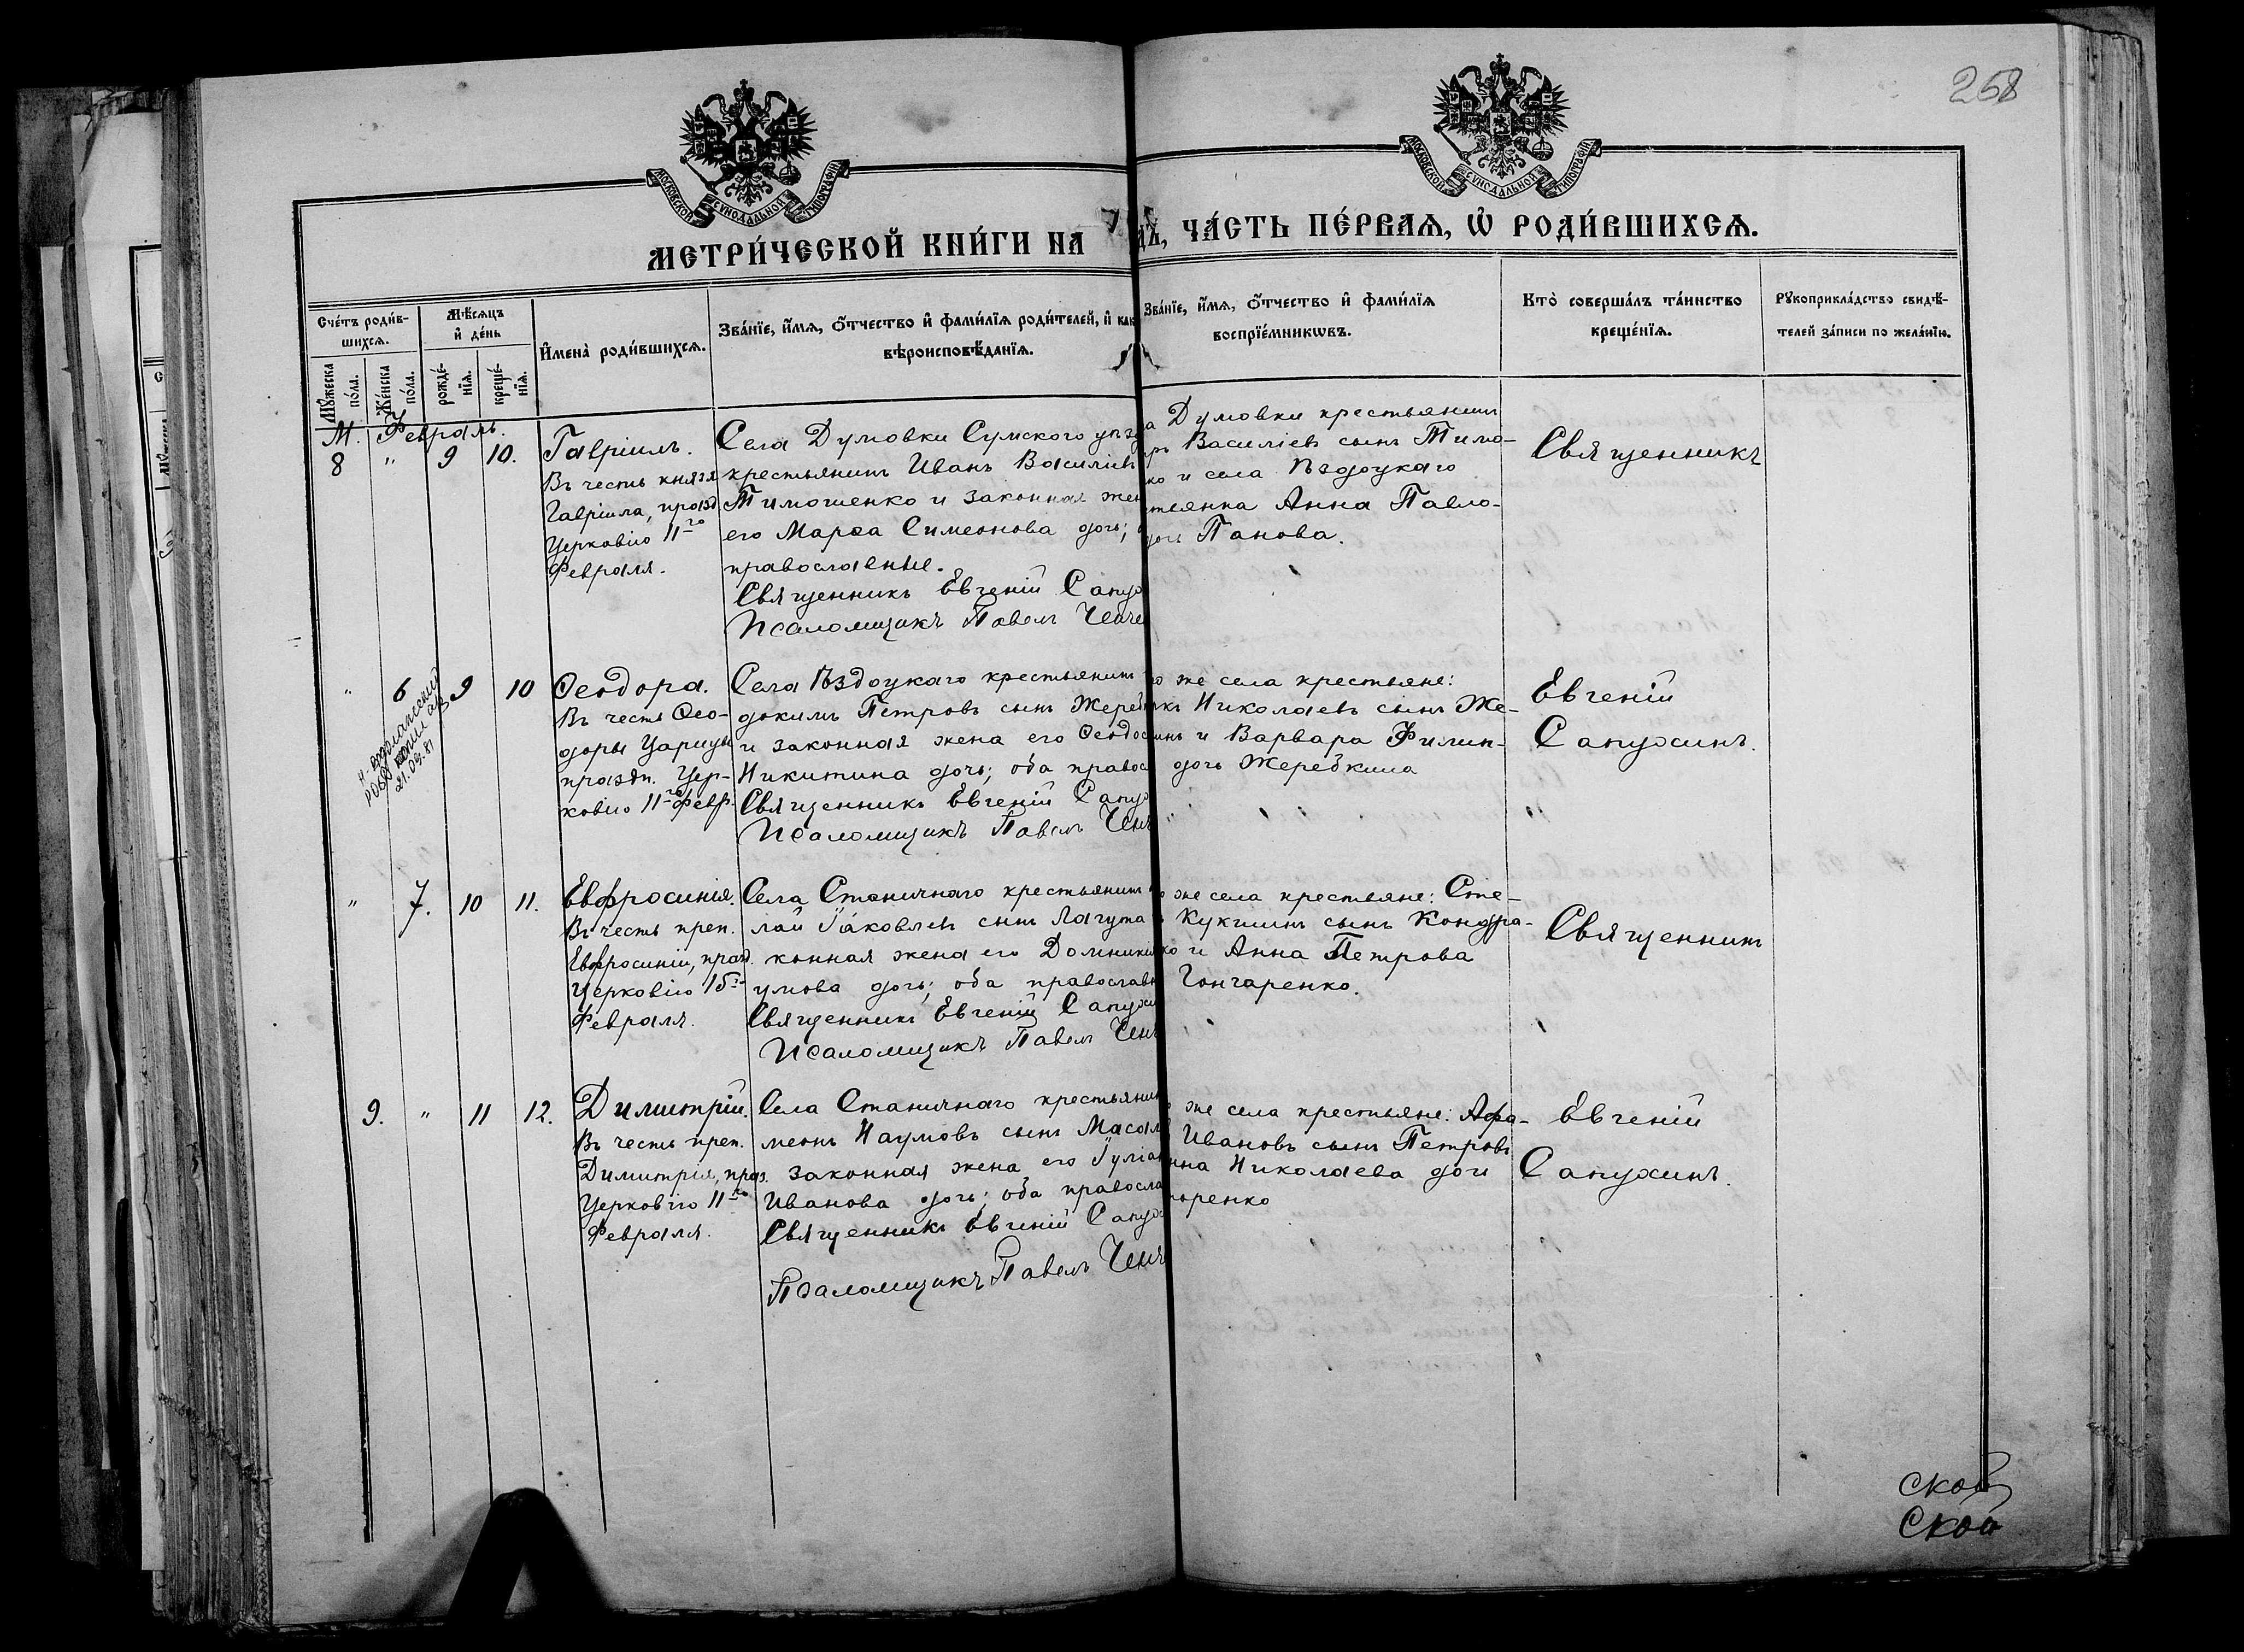 268
МОСКОВСКОЙ СѴНОДАЛЬНОЙ ТИПОГРАФІИ
МОСКОВСКОЙ СѴНОДАЛЬНОЙ ТИПОГРАФІИ
МЕТРИ́ЧЕСКОЙ КНИ́ГИ НА
ЧА́СТЬ ПЕ́РВАѦ, Ѽ РОДИ́ВШИХСѦ.
Сче́тъ роди́в-
шихсѧ.
Мѣ́сѧцъ
и҆ де́нь
И҆мена̀ роди́вшихсѧ.
Зва́нїе, и҆́мѧ, ѻ҆́тчество и҆ фами́лїѧ роди́телей, и҆ как
вѣроисповѣ́данїѧ.
Зва́нїе, и҆́мѧ, ѻ҆́тчество и҆ фами́лїѧ
воспрїе́мникѡвъ.
Кто̀ соверша́лъ та́инство
креще́нїѧ.
Рꙋкоприкла́дство свидѣ́-
телей за́писи по жела́нїю.
Мꙋ́жеска
по́ла.
Же́нска
по́ла.
рожде́-
нїѧ.
креще́-
нїѧ.
М. Февраль.
8 " 9 10.
Гавріилъ.
Въ честь князя
Гавріила, празд
Церковію 11-го
Февраля.
Села Думовки Сумского уѣз
крестьянинъ Иванъ Василіевъ
Тимошенко и законная жен
его Марѳа Симеонова дочь;
православные.
Священникъ Евгеній Сапух
Псаломщикъ Павелъ
а Думовки крестьянин
ръ Василіевъ сынъ Тимо-
ко и села Ѣздоцкаго
стьянка Анна Павло-
дочь Панова.
Священникъ
" 6 9 10
21.09.81
Ѳеодора.
Въ честь Ѳео-
доры Царицы
праздн. Цер-
ковію 11-го Февр.
Села Ѣздоцкаго крестьянинъ
докимъ Петровъ сынъ Жереб
и законная жена его Ѳеодос
Никитина дочь; оба правос
Священникъ Евгеній Сапух
Псаломщикъ Павелъ
о же села крестьяне:
Николаевъ сынъ Же-
инъ и Варвара Филип-
дочь Жеребкина
Евгеній
Сапухинъ.
" 7. 10 11.
Евфросинія.
Въ честь преп.
Евфросиніи, празд.
Церковію 15-го
Февраля.
Села Станичнаго крестьянинъ
лай Іаковлевъ сынъ Лагута
конная жена его Домникія
умова дочь; оба православн
Священникъ Евгеній Сапухи
Псаломщикъ Павелъ
о же села крестьяне: Сте-
сынъ Кондра-
ко и Анна Петрова
Гончаренко.
Священникъ
9. " 11 12.
Димитрій.
Въ честь преп.
Димитрія, праз.
Церковію 11-го
Февраля.
Села Станичнаго крестьянин
меонъ Наумовъ сынъ Масал
законная жена его Іуліан
Иванова дочь; оба правосла
Священникъ Евгеній Сапух
Псаломщикъ Павелъ
же села крестьяне: Афа-
Ивановъ сынъ Петровъ
нна Николаева доч
оренко
Евгеній
Сапухинъ.
ской